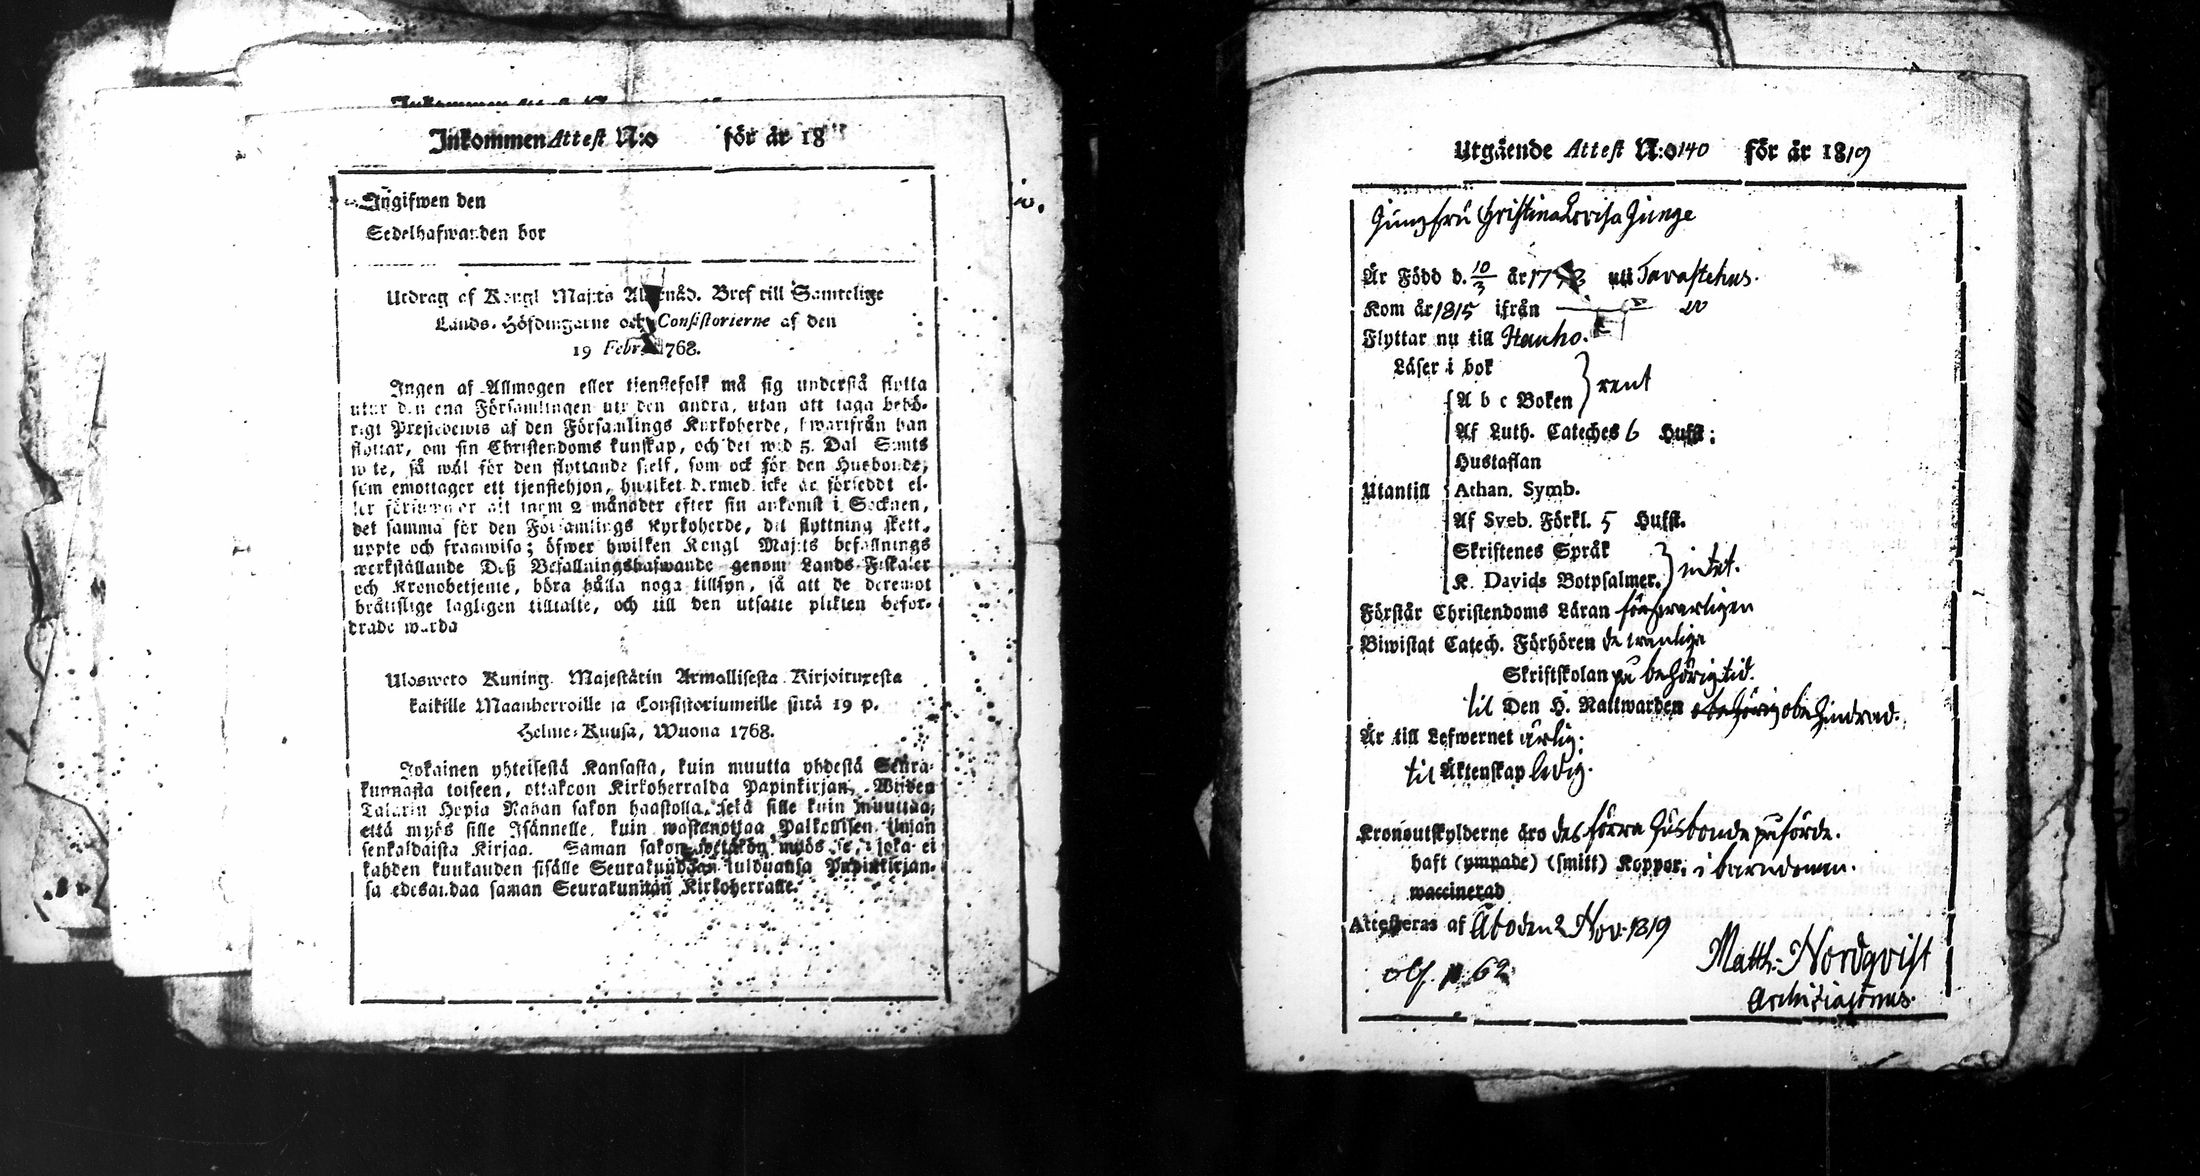 Inkommen Attest N:o för år 18
Ingifwen den
Sedelhafwanden bor
Utdrag af Kongl Maj:ts Allernåd. Bref till Samtelige
Lands-Höfdingarne och Consistorierne af den
19 Febr. 1768.
Ingen af Allmogen eller tjenstefolk må sig understå flytta
utur den ena Församlingen uti den andra, utan att taga behö-
rigt Prestebewis af den Församlings Kyrkoherde, hwarifrån han
flyttar, om sin Christendoms kunskap, och det wid 5. Dal Smts
wite, så wäl för den flyttande sielf, som ock för den Husbonde,
som emottager ett tjenstehjon, hwilket dermed icke är försedt el-
ler försummar att inom 2 månader efter sin ankomst i Socknen,
det samma för den Församlings Kyrkoherde, dit flyttning skett,
uppte och framwisa; öfwer hwilken Kongl Maj:ts befallnings
werkställande Deß Befallningshafwande genom Lands-Fiskaler
och Kronobetjente, böra hålla noga tillsyn, så att de deremot
bråttslige lagligen tilltalte, och till den utsatte plikten befor-
drade warda
Ulosweto Kuning. Majestätin Armollisesta Kirjoituxesta
kaikille Maanherroille ja Consistoriumeille siitä 19 p.
Helme-Kuusa, Wuona 1768.
Jokainen yhteisestä Kansasta, kuin muutta yhdestä Seura-
kunnasta toiseen, ottakoon Kirkoherralda Papinkirjan, Wijden
Talarin Hopia Rahan sakon haastolla, sekä sille kuin muuttaa,
että myös sille Isännelle, kuin wastanottaa Palkollisen ilman
senkaldaista Kirjaa. Saman sakon wetäkön myös se, joka ei
kahden kuukauden sisälle Seurakundaan tulduansa Papinkirjan-
sa edesandaa saman Seurakunnan Kirkoherralle.
Utgående Attest N:o 140 för år 1819
Jungfru Christina Lovisa Junge
Är Född d. 10/3 år 17 uti Tavastehus.
Kom år 1815 ifrån
Flyttar nu till Hauho.
Läser i bok
A b c Boken } rent
Af Luth. Cateches 6 Hufst:
Hustaflan
Utantill Athan. Symb.
Af Sveb. Förkl. 5 Hufst.
Skriftenes Språk
K. Davids Botpsalmer. } intet.
Förstår Christendoms Läran försvarligen
Biwistat Catech. Förhören de vanliga
Skriftskolan på behörig tid.
til Den H. Nattwarden obehindrad.
Är till Lefwernet ärlig;
til Äktenskap ledig.
Kronoutskylderne äro des förra Husbonde påförde.
haft (ympade) (smitt) Koppor. i barndomen.
waccinerad
Attesteras af Åbo den 2 Nov. 1819
Matth: Nordqvist
Archidiaconus.